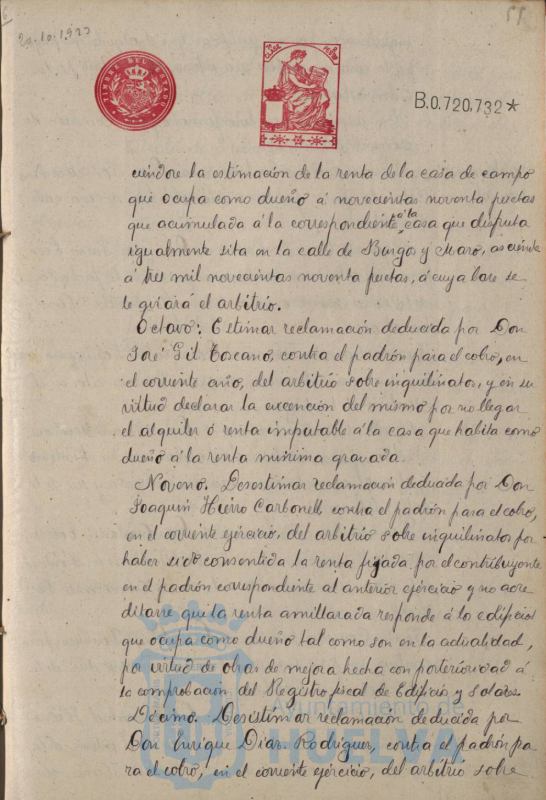 29-10-1923
55
TIMBRE DEL ESTADO
CLASE
B.0.720.732*
ciéndose la estimación de la renta de la casa de campo
que ocupa como dueño á novecientas noventa pesetas
que acumulada á la correspondiente á la casa que disfruta
igualmente sita en la calle de Burgos y Mazo, asciende
á tres mil novecientas noventa pesetas, á cuya base se
le girará el arbitrio.
Octavo: Estimar reclamación deducida por Don
José Gil Toscano, contra el padrón para el cobro, en
el corriente año, del arbitrio sobre inquilinatos, y en su
virtud declarar la excención del mismo por no llegar
el alquiler ó renta imputable á la casa que habita como
dueño á la renta mínima gravada.
Noveno. Desestimar reclamación deducida por Don
Joaquin Hierro Carbonell contra el padrón para el cobro,
en el corriente ejercicio, del arbitrio sobre inquilinatos por
haber sido consentida la renta fijada por el contribuyente
en el padrón correspondiente al anterior ejercicio y no acre
ditarse que la renta amillarada responde á lo edificios
que ocupa como dueño tal como son en la actualidad,
por virtud de obras de mejora hecha con porterioridad á
la comprobación del Registro fiscal de Edificio y solares.
Décimo. Desestimar reclamación deducida por
Don Enrique Diaz Rodriguez, contra el padrón pa
ra el cobro, en el corriente ejercicio, del arbitrio sobre
Ayuntamiento de
HUELVA